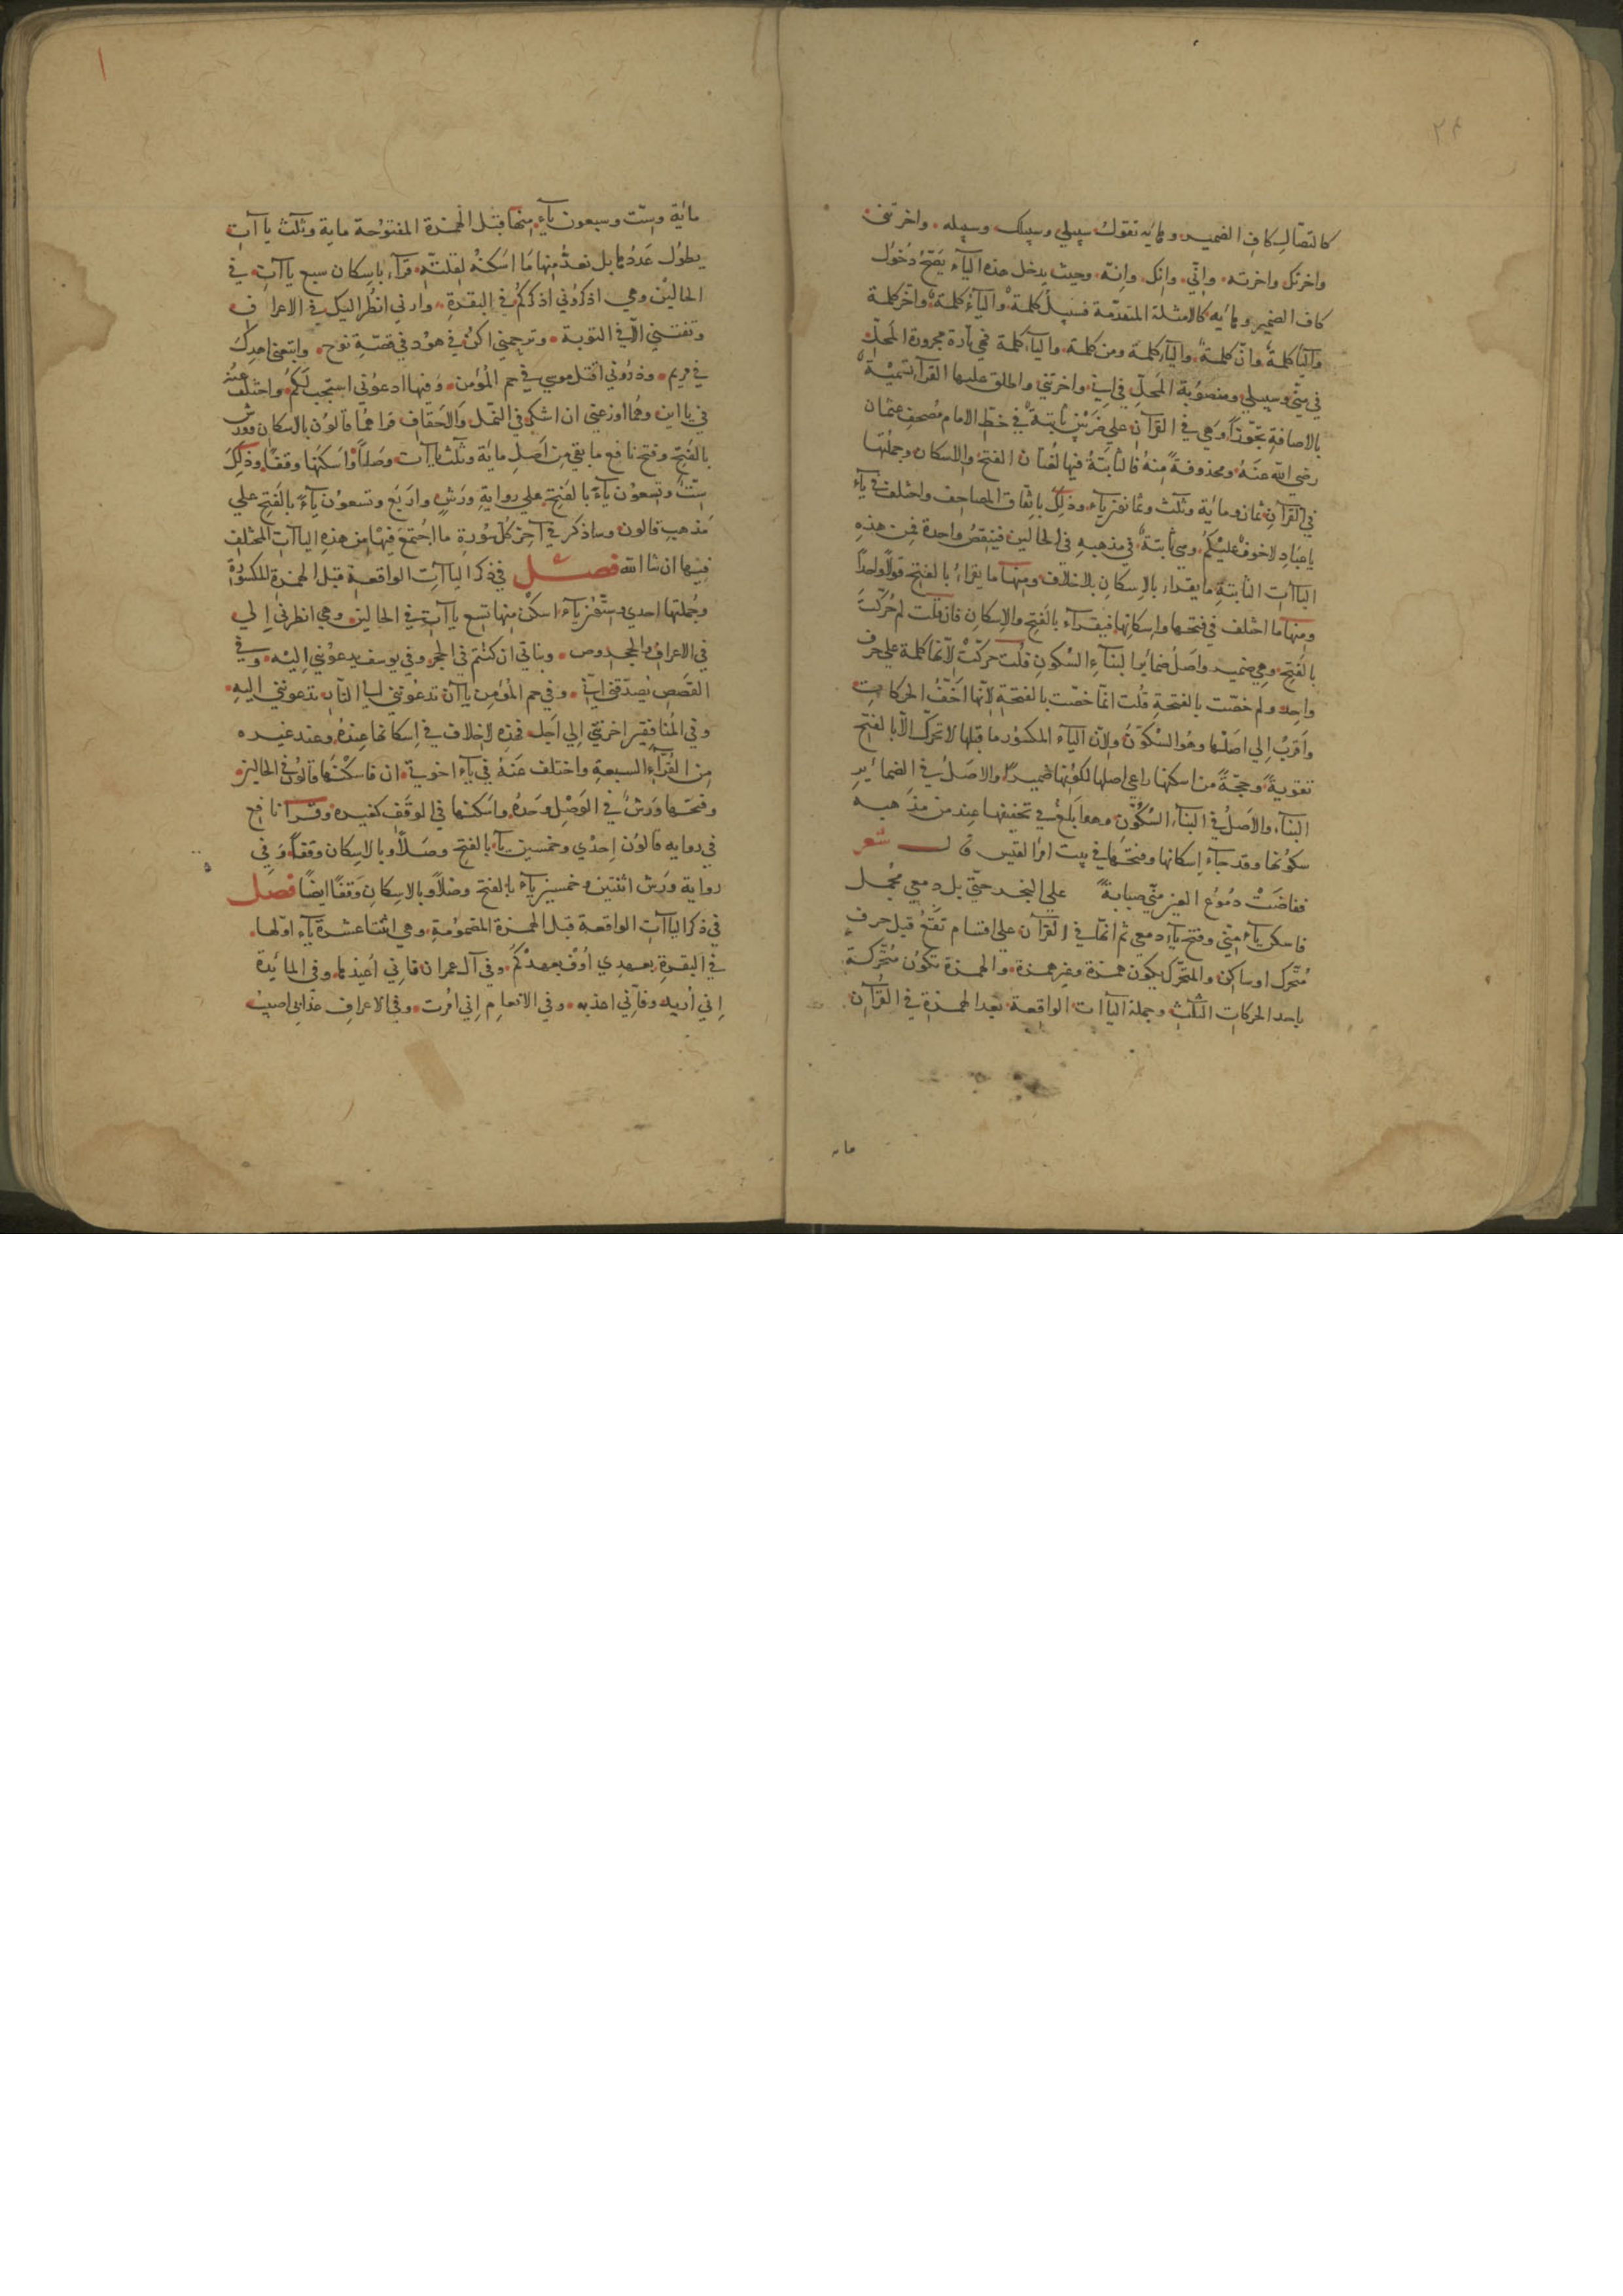 ٢٤
كاتصال كاف الضمير وهائه تقول سبيلي وسبيلك وسبيله واخرتني
واخرتك واخرته واني وانك وانه وحيث يدخل هذه الياء يصح دخول
كاف الضمير وهائه كالامثلة المتقدمة فسبيل كلمة والياء كلمة واخر كلمة
والياء كلمة وان كلمة والياء كلمة ومن كلمة والياء كلمة فهي تارة مجرورة المحل
في مني وسبيلي ومنصوبة المحل في اني واخرتني واطلق عليها القراء تسمية
بالاضافة تجوزا وهي في القرآن على ضربين ثابتة في خط الامام مصحف عثمان
رضي الله عنه ومحذوفة منه فالثابتة فيها لغتان الفتح والاسكان وجملتها
في القرآن ثمان ومائة وثلث وثمانون ياء وذلك باتفاق المصاحف واختلف في ياء
يا عباد لا خوف عليكم وهي ثابتة في مذهبه في الحالين فينقص واحدة فمن هذه
الياآت الثابتة ما يقراء بالاسكان بلا خلاف ومنها ما يقراء بالفتح قولا واحدا
ومنها ما اختلف في فتحها واسكانها فيقراء بالفتح والاسكان فان قلت لم حركت
بالفتح وهي ضمير واصل ضمائر البناء السكون قلت حركت لانها كلمة على حرف
واحد ولم خصت بالفتحة قلت انما خصت بالفتحة لانها اخف الحركات
واقرب الى اصلها وهو السكون ولان الياء المكسور ما قبلها لا تحرك الا بالفتح
تقوية وحجة من اسكنها راعى اصلها لكونها ضميرا والاصل في الضمائر
البناء والاصل في البناء السكون وهو ابلغ في تخفيفها عند من مذهبه
سكونها وقد جاء اسكانها وفتحها في بيت امرا القيس قال شعر
ففاضت دموع العين مني صبابة على النحر حتى بل دمعي محمل
فاسكن ياء مني وفتح ياء دمعي ثم انها في القرآن على اقسام تقع قبل حرف
متحرك او ساكن والمتحرك يكون همزة وغير همزة والهمزة تكون متحركة
باحد الحركات الثلث وجملة الياآت الواقعة بعدها الهمزة في القرآن
مائة وست وسبعون ياء منها قبل الهمزة المفتوحة ماية وثلث ياآت
يطول عدها بل نعد منها ما اسكنه لقلته قراء باسكان سبع ياآت في
الحالين وهي اذكروني اذكركم في البقرة وارني انظر اليك في الاعراف
وتفتني الا في التوبة وترحمني اكن في هود في قصة نوح واتبعني اهدك
في مريم وذروني اقتل موسي في حم المؤمن وفيها ادعوني استجب لكم واختلف عنه
في ياءين وهما اوزعني ان اشكر في النمل والاحقاف قراهما قالون بالاسكان وورش
بالفتح وفتح نافع ما بقي من اصل مائة وثلث ياآت وصلا واسكنها وقفا وذلك
ست وتسعون ياء بالفتح على رواية ورش واربع وتسعون ياء بالفتح على
مذهب قالون وساذكر في آخر كل سورة ما اجتمع فيها من هذه الياآت المختلف
فيها ان شا الله فصل في ذكر الياآت الواقعة قبل الهمزة المكسورة
وجملتها احدي وستون ياء اسكن منها تسع ياآت في الحالين وهي انظرني الي
في الاعراف والحجر وص وبناتي ان كنتم في الحجر وفي يوسف يدعونني اليه وفي
القصص يصدقني اني وفي حم المؤمن ياآن تدعونني الى النار تدعونني اليه
وفي المنافقين اخرتني الي اجل فهذه لا خلاف في اسكانها عنده وعند غيره
من القراء السبعة واختلف عنه في ياء اخوتي ان فاسكنها قالون في الحالين
وفتحها ورش في الوصل وحده واسكنها في الوقف كغيره وقرا نافع
في رواية قالون احدي وخمسين ياء بالفتح وصلا وبالاسكان وقفا وفي
رواية ورش اثنتين وخمسين ياء بالفتح وصلا وبالاسكان وقفا ايضا فصل
في ذكر الياآت الواقعة قبل الهمزة المضمومة وهي اثنتا عشرة ياء اولها
في البقرة بعهدي اوف بعهدكم وفي آل عمران فاني اعيذها وفي المائدة
اني اريد وفاني اعذبه وفي الانعام اني امرت وفي الاعراف عذابي اصيب